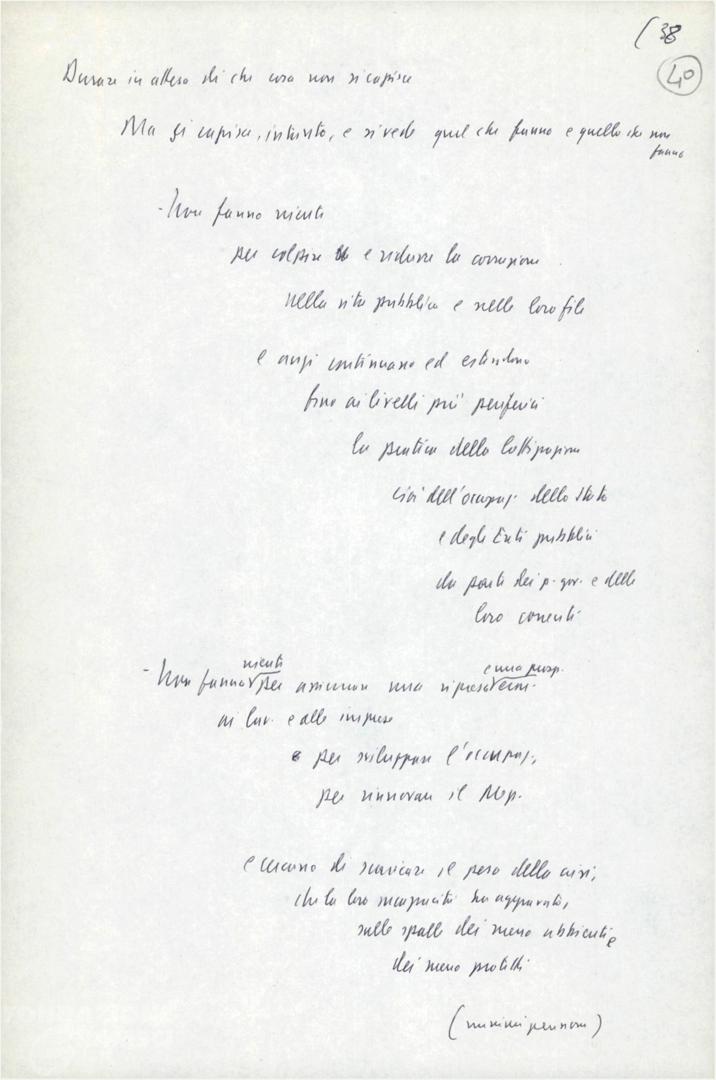 (38
40
Durare in attesa di che cosa non si capisce
Ma si capisce, intanto, e si vede quel che fanno e quello che non
fanno
- Non fanno niente
per colpire e ridurre la corruzione
nella vita pubblica e nelle loro file
e anzi continuano ed estendono
fino ai livelli più periferici
la pratica della lottizzazione
cioè dell'occupaz. dello Stato
e degli Enti pubblici
da parte dei p. gov. e delle
loro correnti
niente e una prosp.
- Non fanno per assicurare una ripresa econ.
ai lav. e alle imprese
e per sviluppare l'occupaz,
per rinnovare il Mzp.
e cercano di scaricare il peso della crisi,
che la loro incapacità ha aggravato,
sulle spalle dei meno abbienti e
dei meno protetti
(minimi pensione)